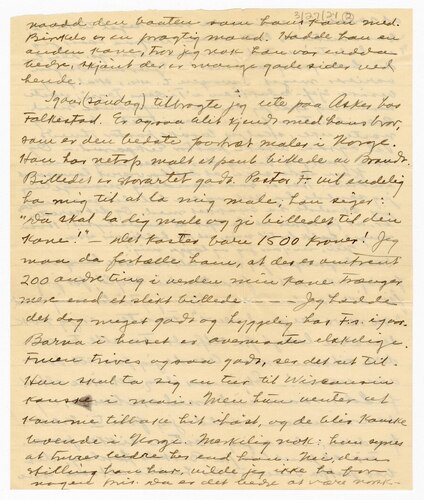 3/22/21 (2)
naadd den baaten som han kom med.
Birkelo er en prægtig mand. Hadde han en
anden kone, tror jeg nok han var endda
bedre, skjønt der er mange gode sider ved
hende.
Igaar (søndag) tilbragte jeg ute paa Asker hos
Falkestad. Er ogsaa blit kjendt med hans bror,
som er den bedste portræt maler i Norge.
Han har netop malt et pent billede av Brandt.
Billedet er storartet godt. Pastor F. vil endelig
ha mig til at la mig male, han siger:
"Du skal la dig male og gi billedet til din
kone!" — Det koster bare 1500 kroner! Jeg
maa da fortælle ham, at der er omtrent
200 andre ting i verden min kone trænger
mere end et slikt billede - - - - Jeg hadde
det dog meget godt og hyggelig hos F.s. igaar.
Barna i huset er overmaate elskelige.
Fruen trives ogsaa godt, ser det ut til.
Hun skal ta sig en tur til Wisconsin
kanske i mai. Men hun venter at
komme tilbake hit ihøst, og de blir kanske
boende i Norge. Merkelig nok: hun synes
at trives bedre her end han. Nei, den
stilling han har, vilde jeg ikke ta for
nogen pris. Da er det bedre at være norsk-